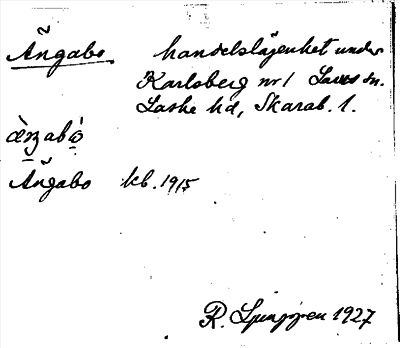 Ängabo handelslägenhet under
Karlsberg nr 1 Lavads sn.
Laske hd, Skarab. l.
Ängabo kb. 1915
R. Ljunggren 1927